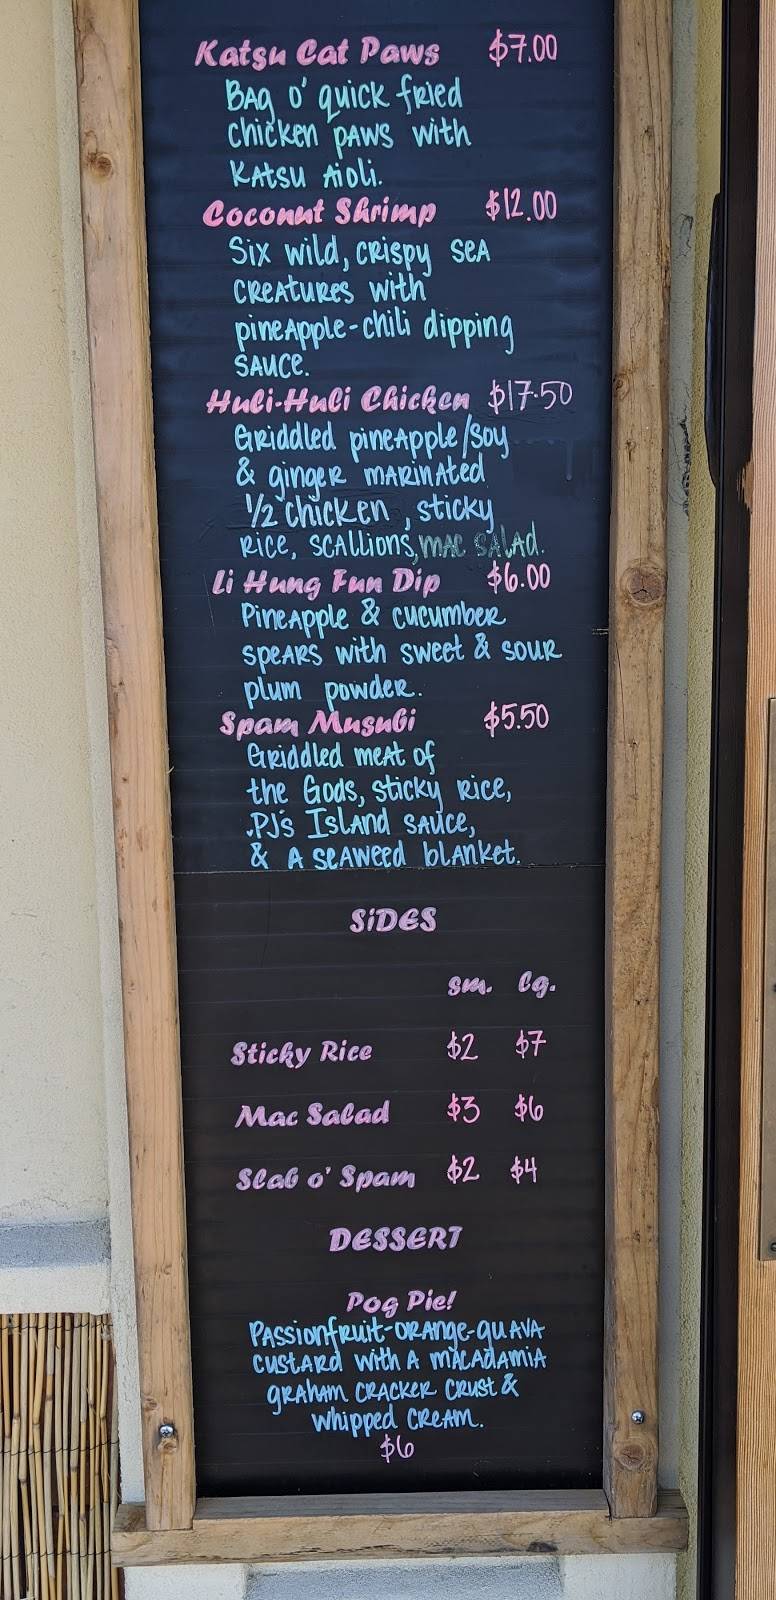 Katsu Cat Paws $7.00
Bag o' quick fried
chicken paws with
Katsu Aioli.
Coconut Shrimp $12.00
Six wild, crispy sea
creatures with
pineapple-chili dipping
sauce.
Huli-Huli Chicken $17.50
Griddled pineapple/soy
& ginger marinated
1/2 chicken, sticky
rice, scallions, mac salad.
Li Hung Fun Dip $6.00
Pineapple & cucumber
spears with sweet & sour
plum powder.
Spam Musubi $5.50
Griddled meat of
the Gods, sticky rice,
PJ's Island sauce,
& a seaweed blanket.
SiDES
sm. lg.
Sticky Rice $2 $7
Mac Salad $3 $6
Slab o' Spam $2 $4
DESSERT
Pog Pie!
Passionfruit-orange-guava
custard with a macadamia
graham cracker crust &
whipped cream.
$6